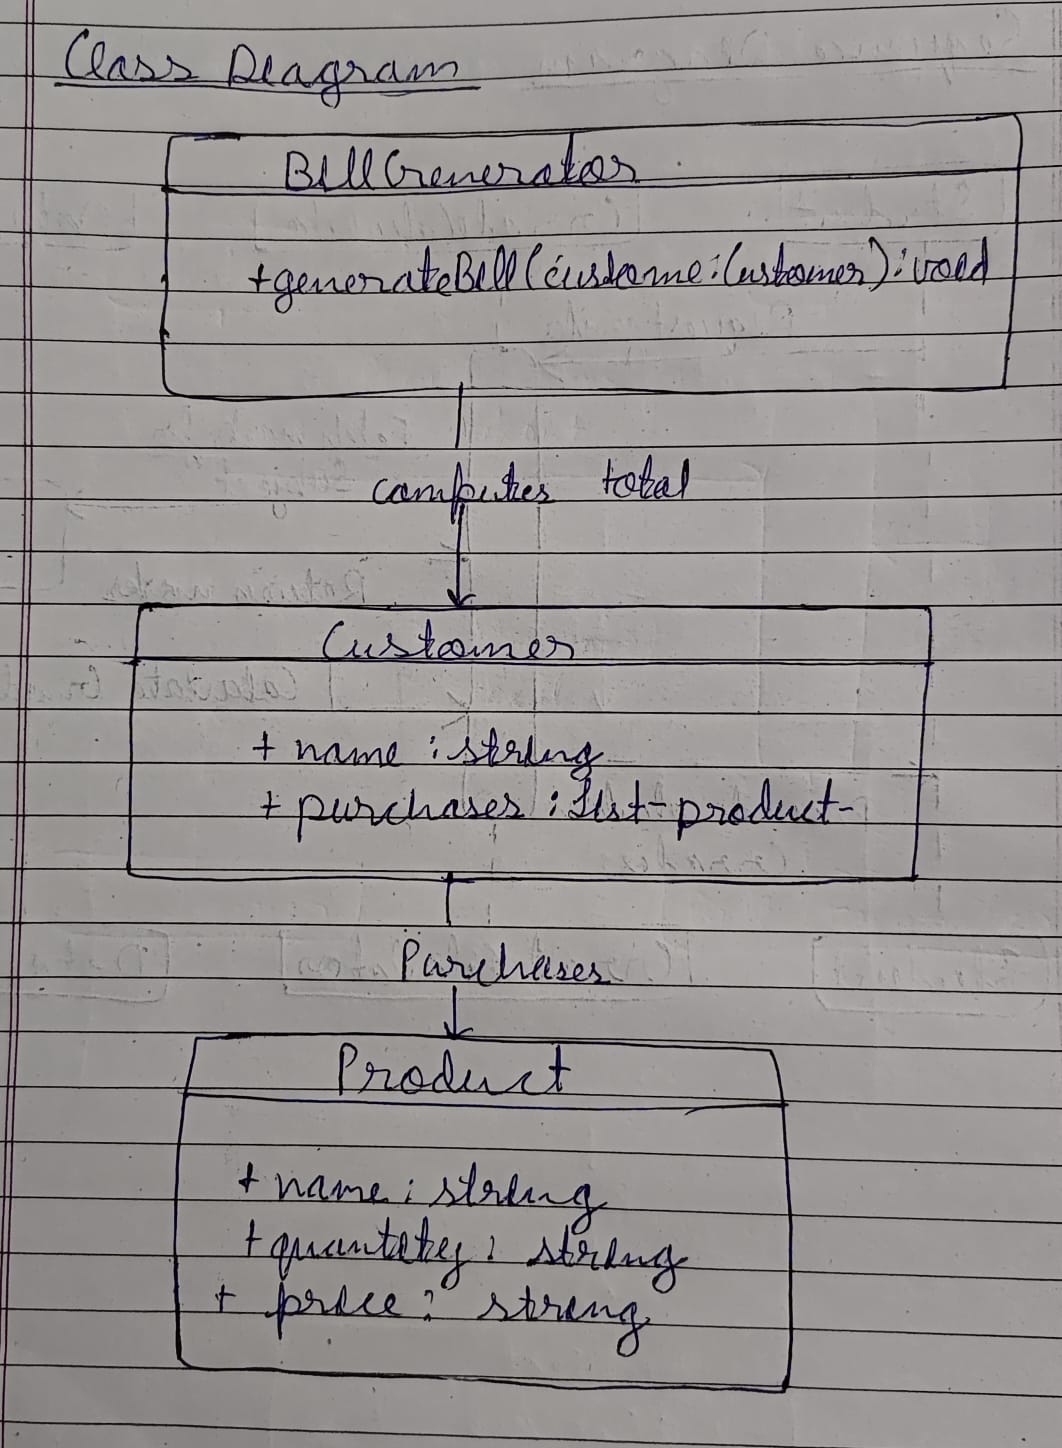 Class Diagram
BillGenerator
+generateBill(custome:Customer):void
computes total
Customer
+ name : string
+ purchases : List-product-
Purchases
Product
+ name : string
+ quantity : string
+ price : string